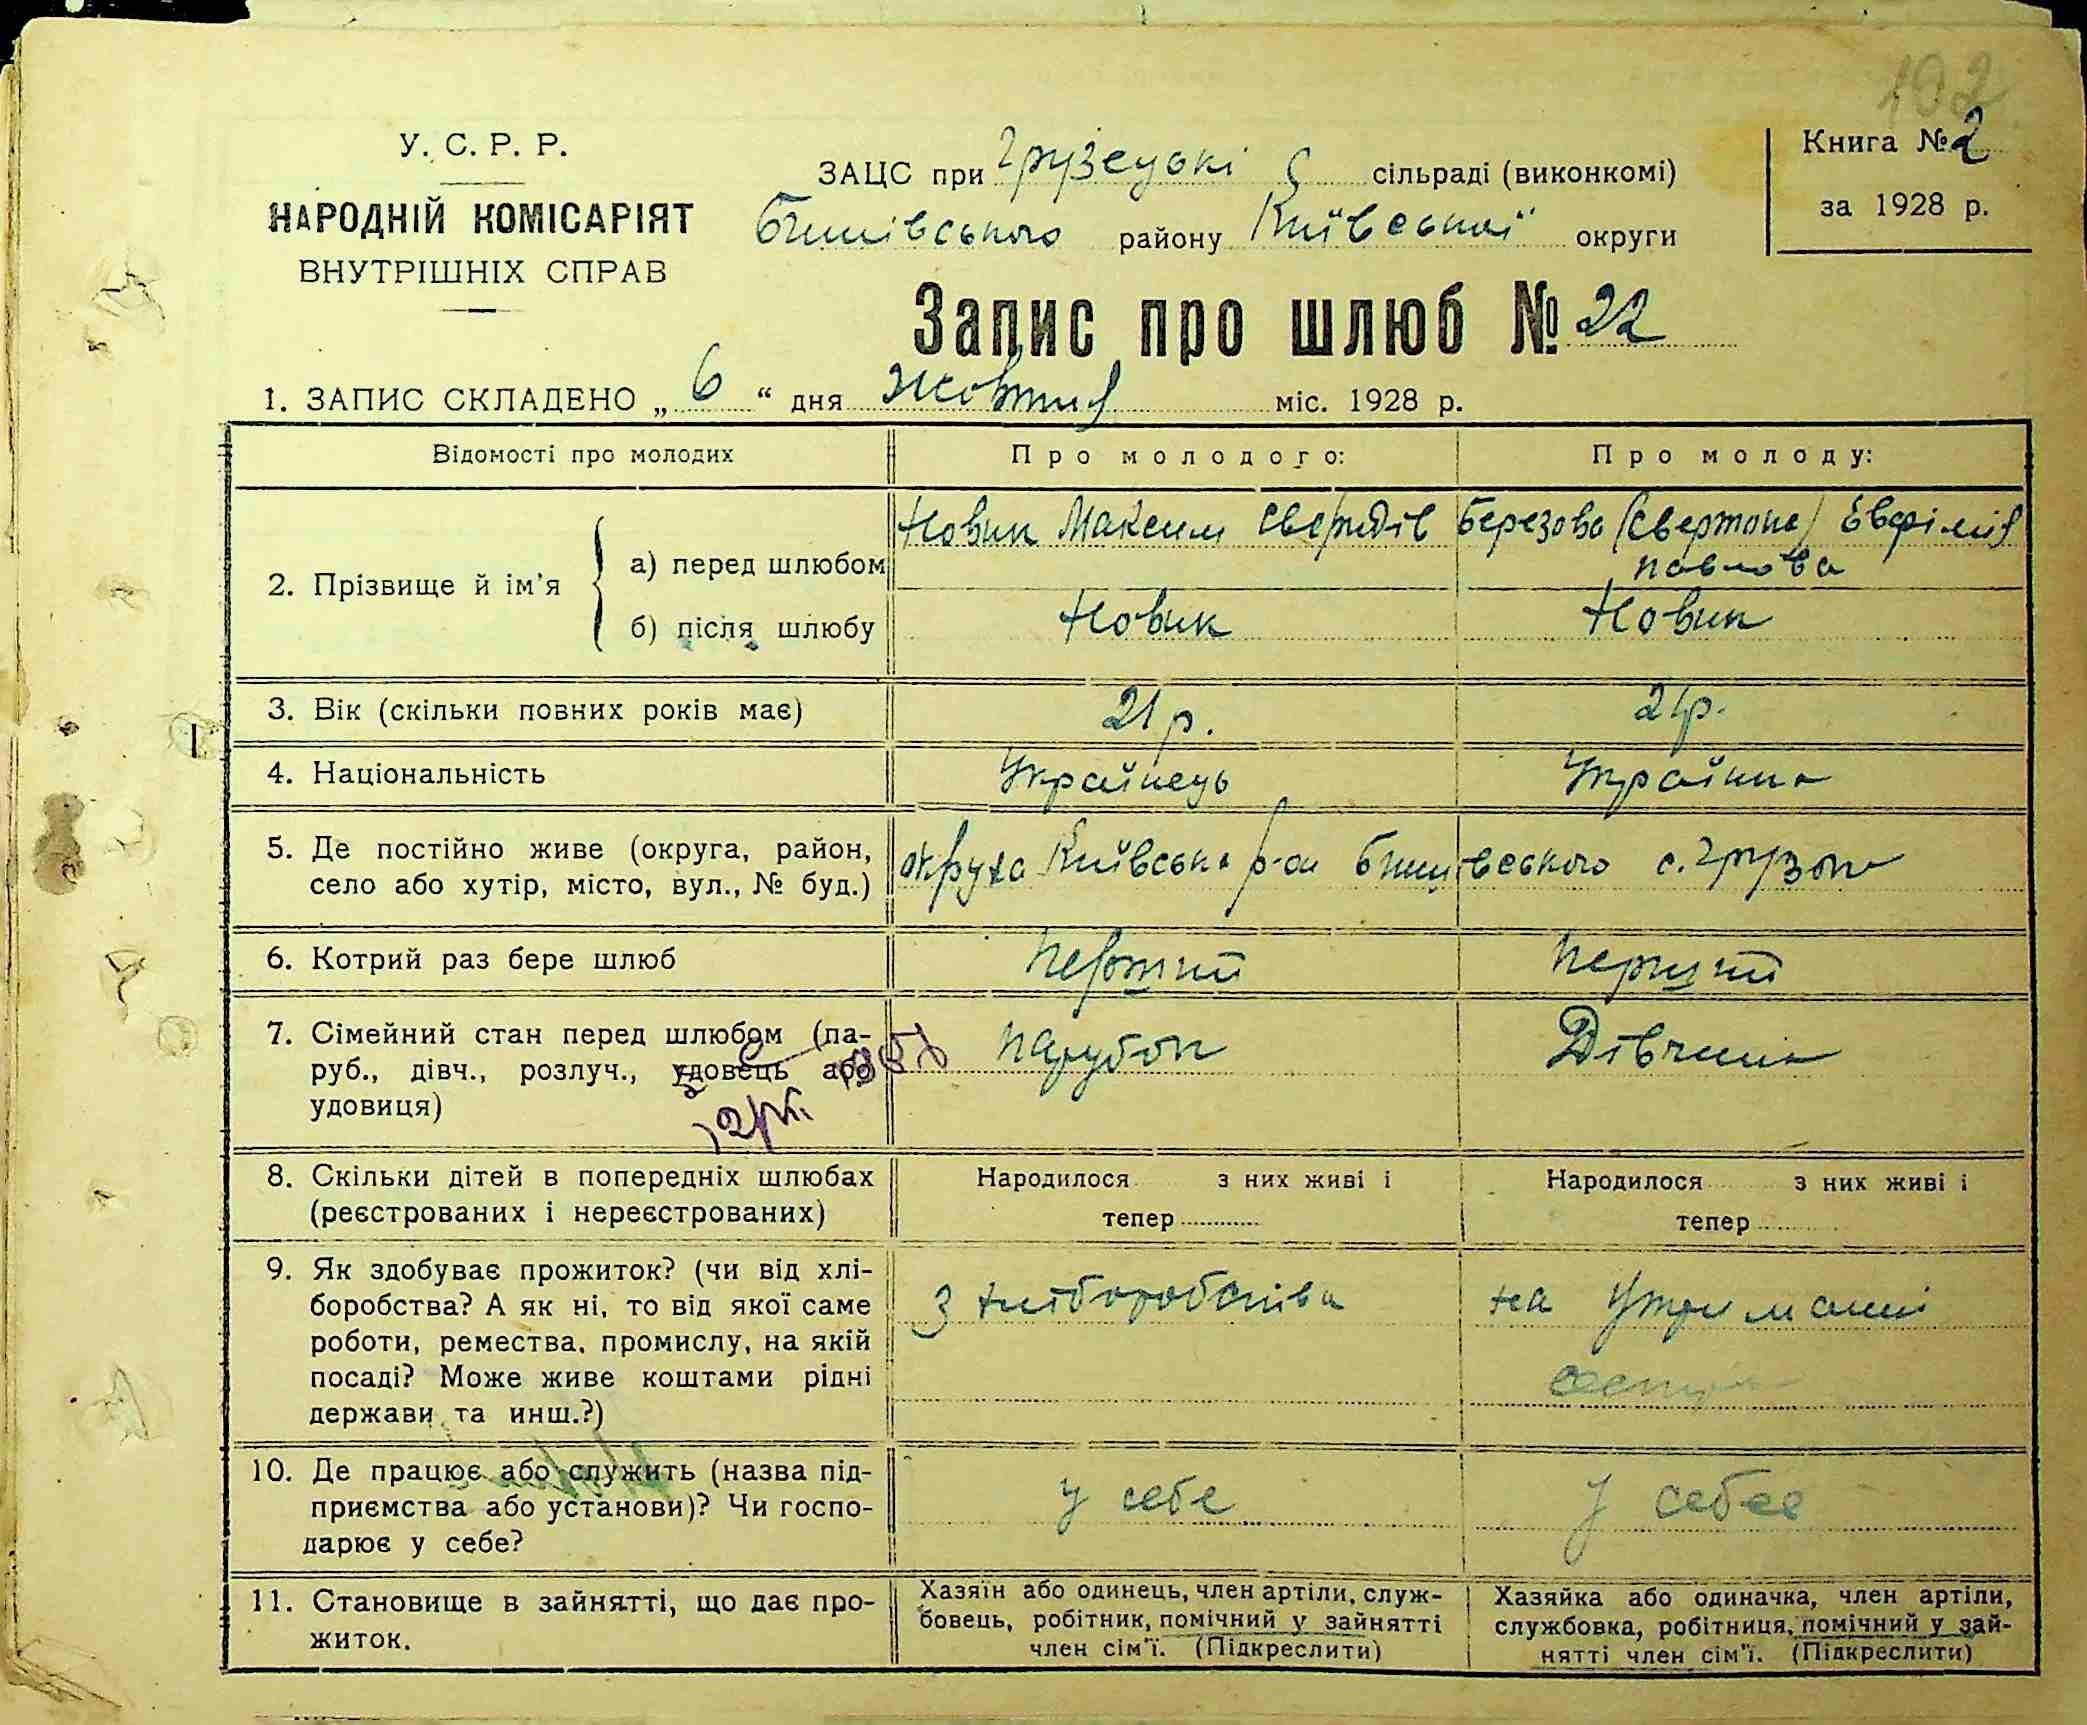 102
У. С. Р. Р.
НАРОДНІЙ КОМІСАРІЯТ
ВНУТРІШНІХ СПРАВ
ЗАЦС при Грузецькі с сільраді (виконкомі)
Бишівського району Київської округи
Книга № 2
за 1928 р.
Запис про шлюб № 22
1. ЗАПИС СКЛАДЕНО „ 6 “ дня Жовтня міс. 1928 р.
Відомості про молодих
Про молодого:
Про молоду:
2. Прізвище й ім'я
а) перед шлюбом
Новик Максим
Березова (Свертока) Евфімія
Павлова
б) після шлюбу
Новик
Новик
3. Вік (скільки повних років має)
21 р.
21р.
4. Національність
Українець
Українка
5. Де постійно живе (округа, район,
село або хутір, місто, вул., № буд.)
округа Київська р-он Бишівського с. Грузьке
6. Котрий раз бере шлюб
Перший
Перший
7. Сімейний стан перед шлюбом (па-
руб., дівч., розлуч., удовець або
удовиця)
Парубок
Дівчина
8. Скільки дітей в попередніх шлюбах
(реєстрованих і нереєстрованих)
Народилося з них живі і
тепер
Народилося з них живі і
тепер
9. Як здобуває прожиток? (чи від хлі-
боробства? А як ні, то від якої саме
роботи, ремества, промислу, на якій
посаді? Може живе коштами рідні
держави та инш.?)
З хліборобства
на утриманні
10. Де працює або служить (назва під-
приємства або установи)? Чи госпо-
дарює у себе?
у себе
у себе
11. Становище в зайнятті, що дає про-
житок.
Хазяїн або одинець, член артіли, служ-
бовець, робітник, помічний у зайнятті
член сім'ї. (Підкреслити)
Хазяйка або одиначка, член артіли,
службовка, робітниця, помічний у зай-
нятті член сім'ї. (Підкреслити)